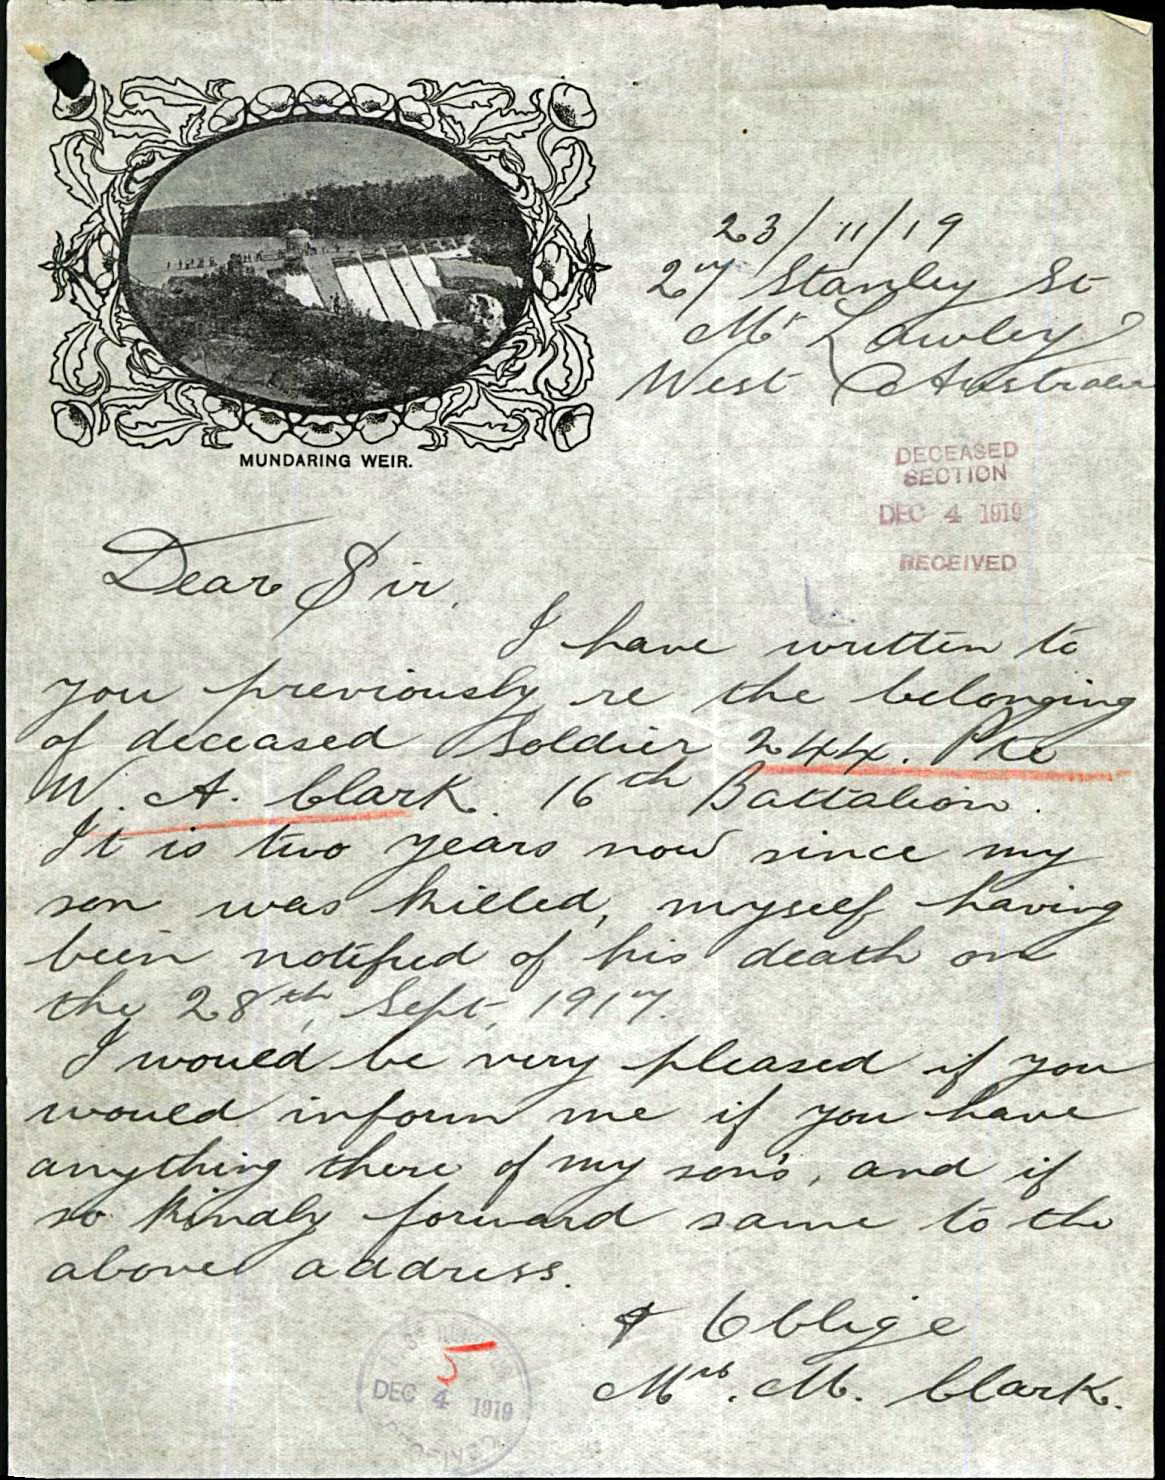 23/11/19
27 Stanley St
Mt Lawley
West Australia
MUNDARING WEIR.
DECEASED
SECTION
DEC 4 1919
RECEIVED
Dear Sir,
I have written to
you previously re the belonging
of deceased Soldier 244. Pte
W. A. Clark. 16th Battalion.
It is two years now since my
son was killed, myself having
been notified of his death on
the 28th, Sept, 1917.
I would be very pleased if you
would inform me if you have
anything there of my son's, and if
so kindly forward same to the
above address.
& Oblige
Mrs. M. Clark.
5
DEC 4 1919